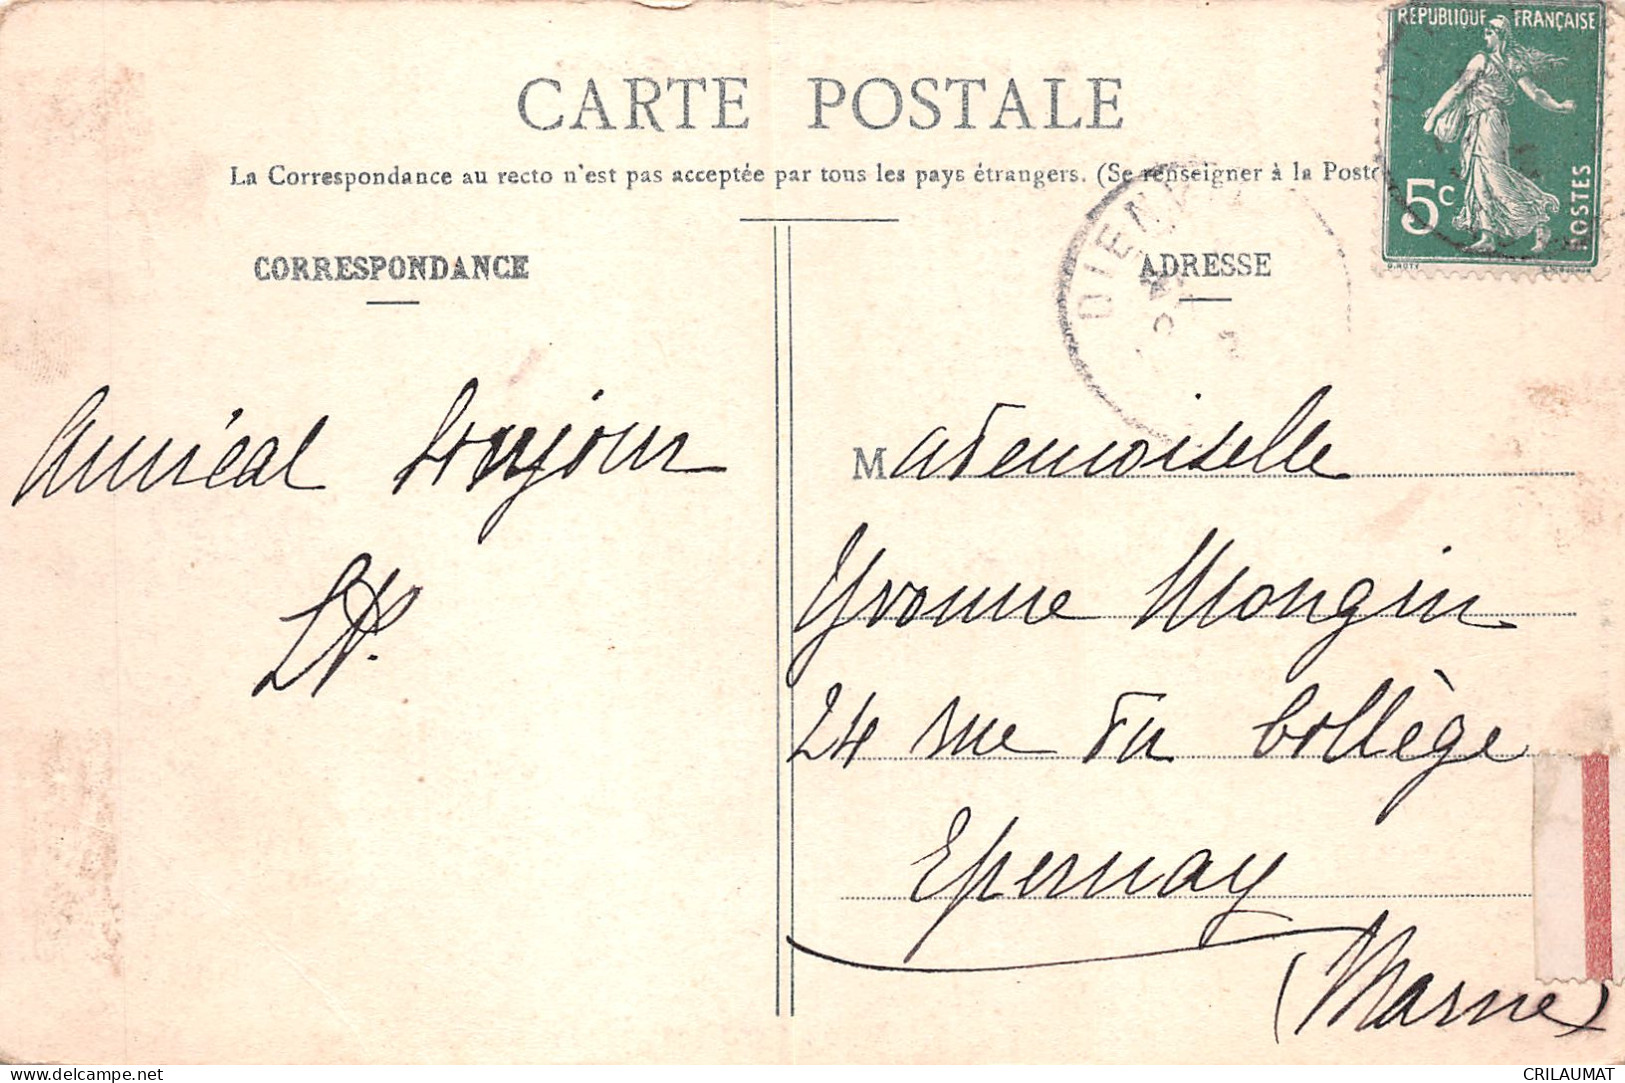 CARTE POSTALE
La Correspondance au recto n'est pas acceptée par tous les pays étrangers. (Se renseigner à la Poste
CORRESPONDANCE
ADRESSE
RÉPUBLIQUE FRANÇAISE
5c
POSTES
DIEN
Amical bonjour
Mademoiselle
Yvonne Mongin
24 rue du Collège
Epernay
(Marne)
delcampe.net
CRILAUMAT